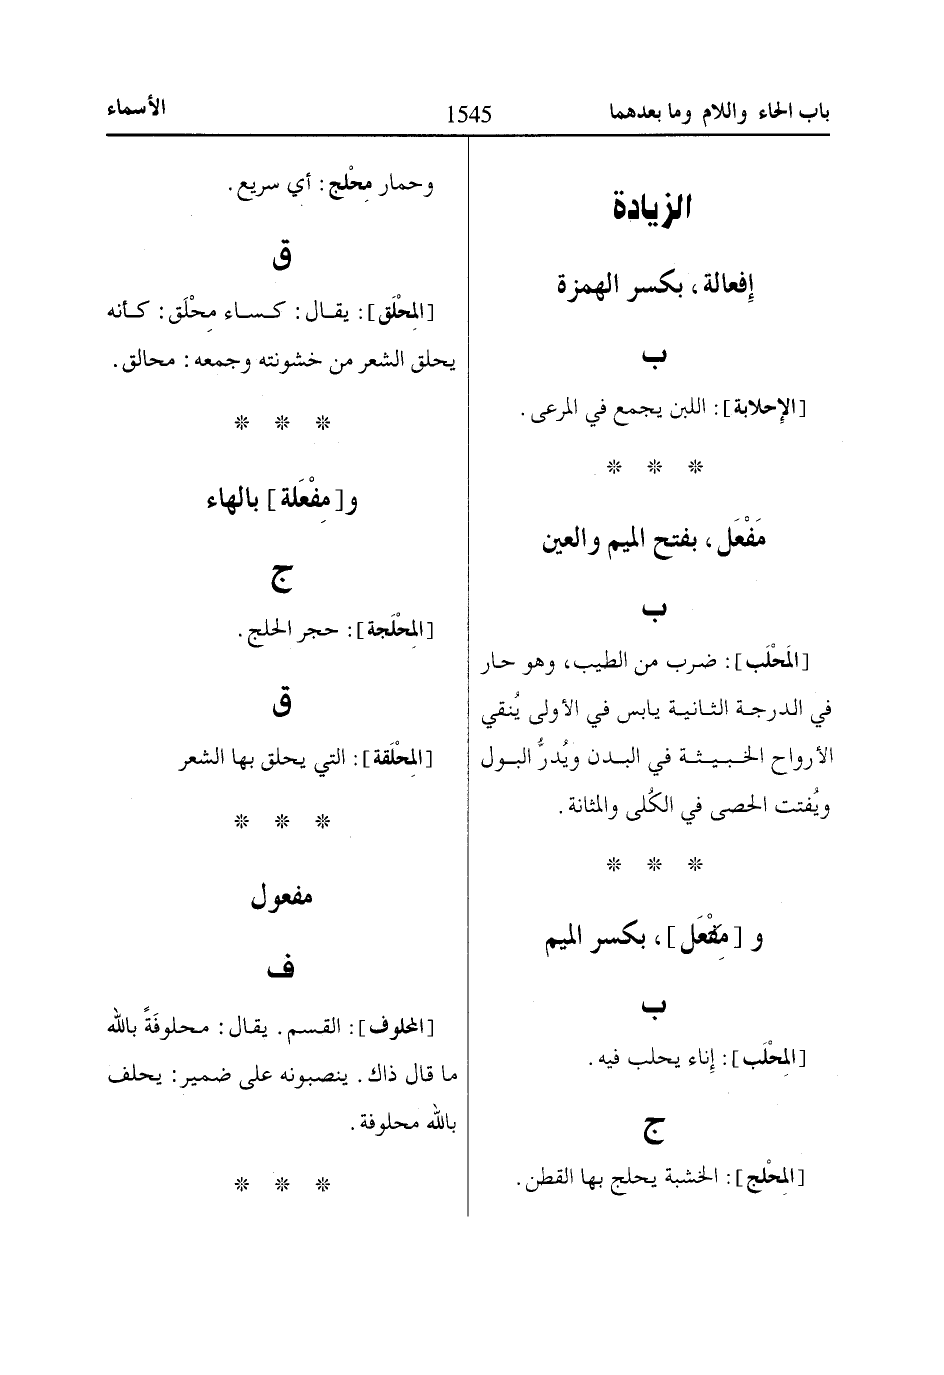 باب الحاء واللام وما بعدهما 1545 الأسماء
الزيادة
إفعالة، بكسر الهمزة
ب
[الإحلابة]: اللبن يجمع في المرعى.
❊ ❊ ❊
مَفْعَل، بفتح الميم والعين
ب
[المَحْلَب]: ضرب من الطيب، وهو حار
في الدرجة الثانية يابس في الأولى يُنقي
الأرواح الخبيثة في البدن ويُدرُّ البول
ويُفتت الحصى في الكُلى والمثانة.
❊ ❊ ❊
و [مِفْعَل]، بكسر الميم
ب
[المِحْلَب]: إناء يحلب فيه.
ج
[المِحْلج]: الخشبة يحلج بها القطن.
وحمار مِحْلج: أي سريع.
ق
[المِحْلَق]: يقال: كساء مِحْلَق: كأنه
يحلق الشعر من خشونته وجمعه: محالق.
❊ ❊ ❊
و[مِفْعَلة] بالهاء
ج
[المِحْلَجة]: حجر الحلج.
ق
[المِحْلَقة]: التي يحلق بها الشعر
❊ ❊ ❊
مفعول
ف
[المحلوف]: القسم. يقال: محلوفَةً بالله
ما قال ذاك. ينصبونه على ضمير: يحلف
بالله محلوفة.
❊ ❊ ❊